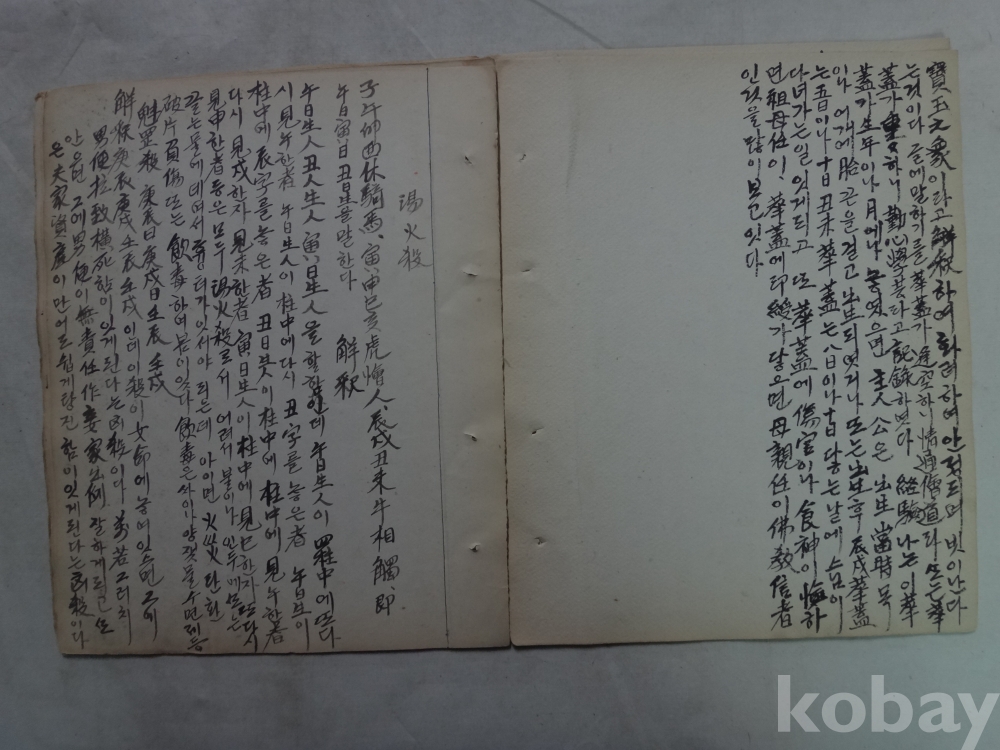 寶玉之象이라고 解釈하여 화려하며 안정되며 빗이난다
는것이다 글에말하기를 華蓋가 逢空하니 情通僧道라 또는 華
蓋가 重重하니 勤心學芸라고 記錄하엿다 経驗 나는 이華
蓋가 生年이나 月에나 놓였으면 主人公은 出生當時 목
이나 어깨에 胎끈을 걸고 出生되엿거나 또는 出生后 辰戌華蓋
는 五日이나 十日 丑未華蓋는 八日이나 十日 닿는날에 스님이
다녀가는일 잇게되고 또 華蓋에 傷官이나 食神이 臨하
면 祖母任이 華蓋에 印綬가 닿으면 母親任이 佛教信者
인것을 많이 보고잇다
湯火殺
子午卯酉休騎馬 寅申巳亥虎 人 辰戌丑未牛相觸 即
午日寅日丑日生을 말한다 解釈
午日生人 丑日生人 寅日生人을 할함인데 午日生人이 四柱中에 또다
시 見午한者 午日生人이 柱中에 다시 丑字를 놓은者 午日生이
柱中에 辰字를 놓은者 丑日生이 柱中에 柱中에 見午한者
다시 見戌한자 見未한者 寅日生人이 柱中에 見巳한자 또다시
見申한者 등은 모두 湯火殺로서 어려서 불이나 인두에 또는
끓는물에 데여서 흉터가 잇서야 되는데 아이면 火災 단회
破片 負傷 또는 飲毒하여 봄이잇다 飲毒은 싸이나 양잿물 수면제등
魁罡殺 庚辰日 庚戌日 壬辰 壬戌
解釈 庚辰 庚戌 壬辰 壬戌 인데 이殺이 女命에 놓여 잇스면 그에
男便 横死함이 잇게된다는 凶殺이다 万若 그러치
안으면 그에 男便이 無責任 作妾 家 잘하게되고 또
은 夫家 이 만어도 쉽게 탕진함이 잇게된다는 凶殺이다
kobay